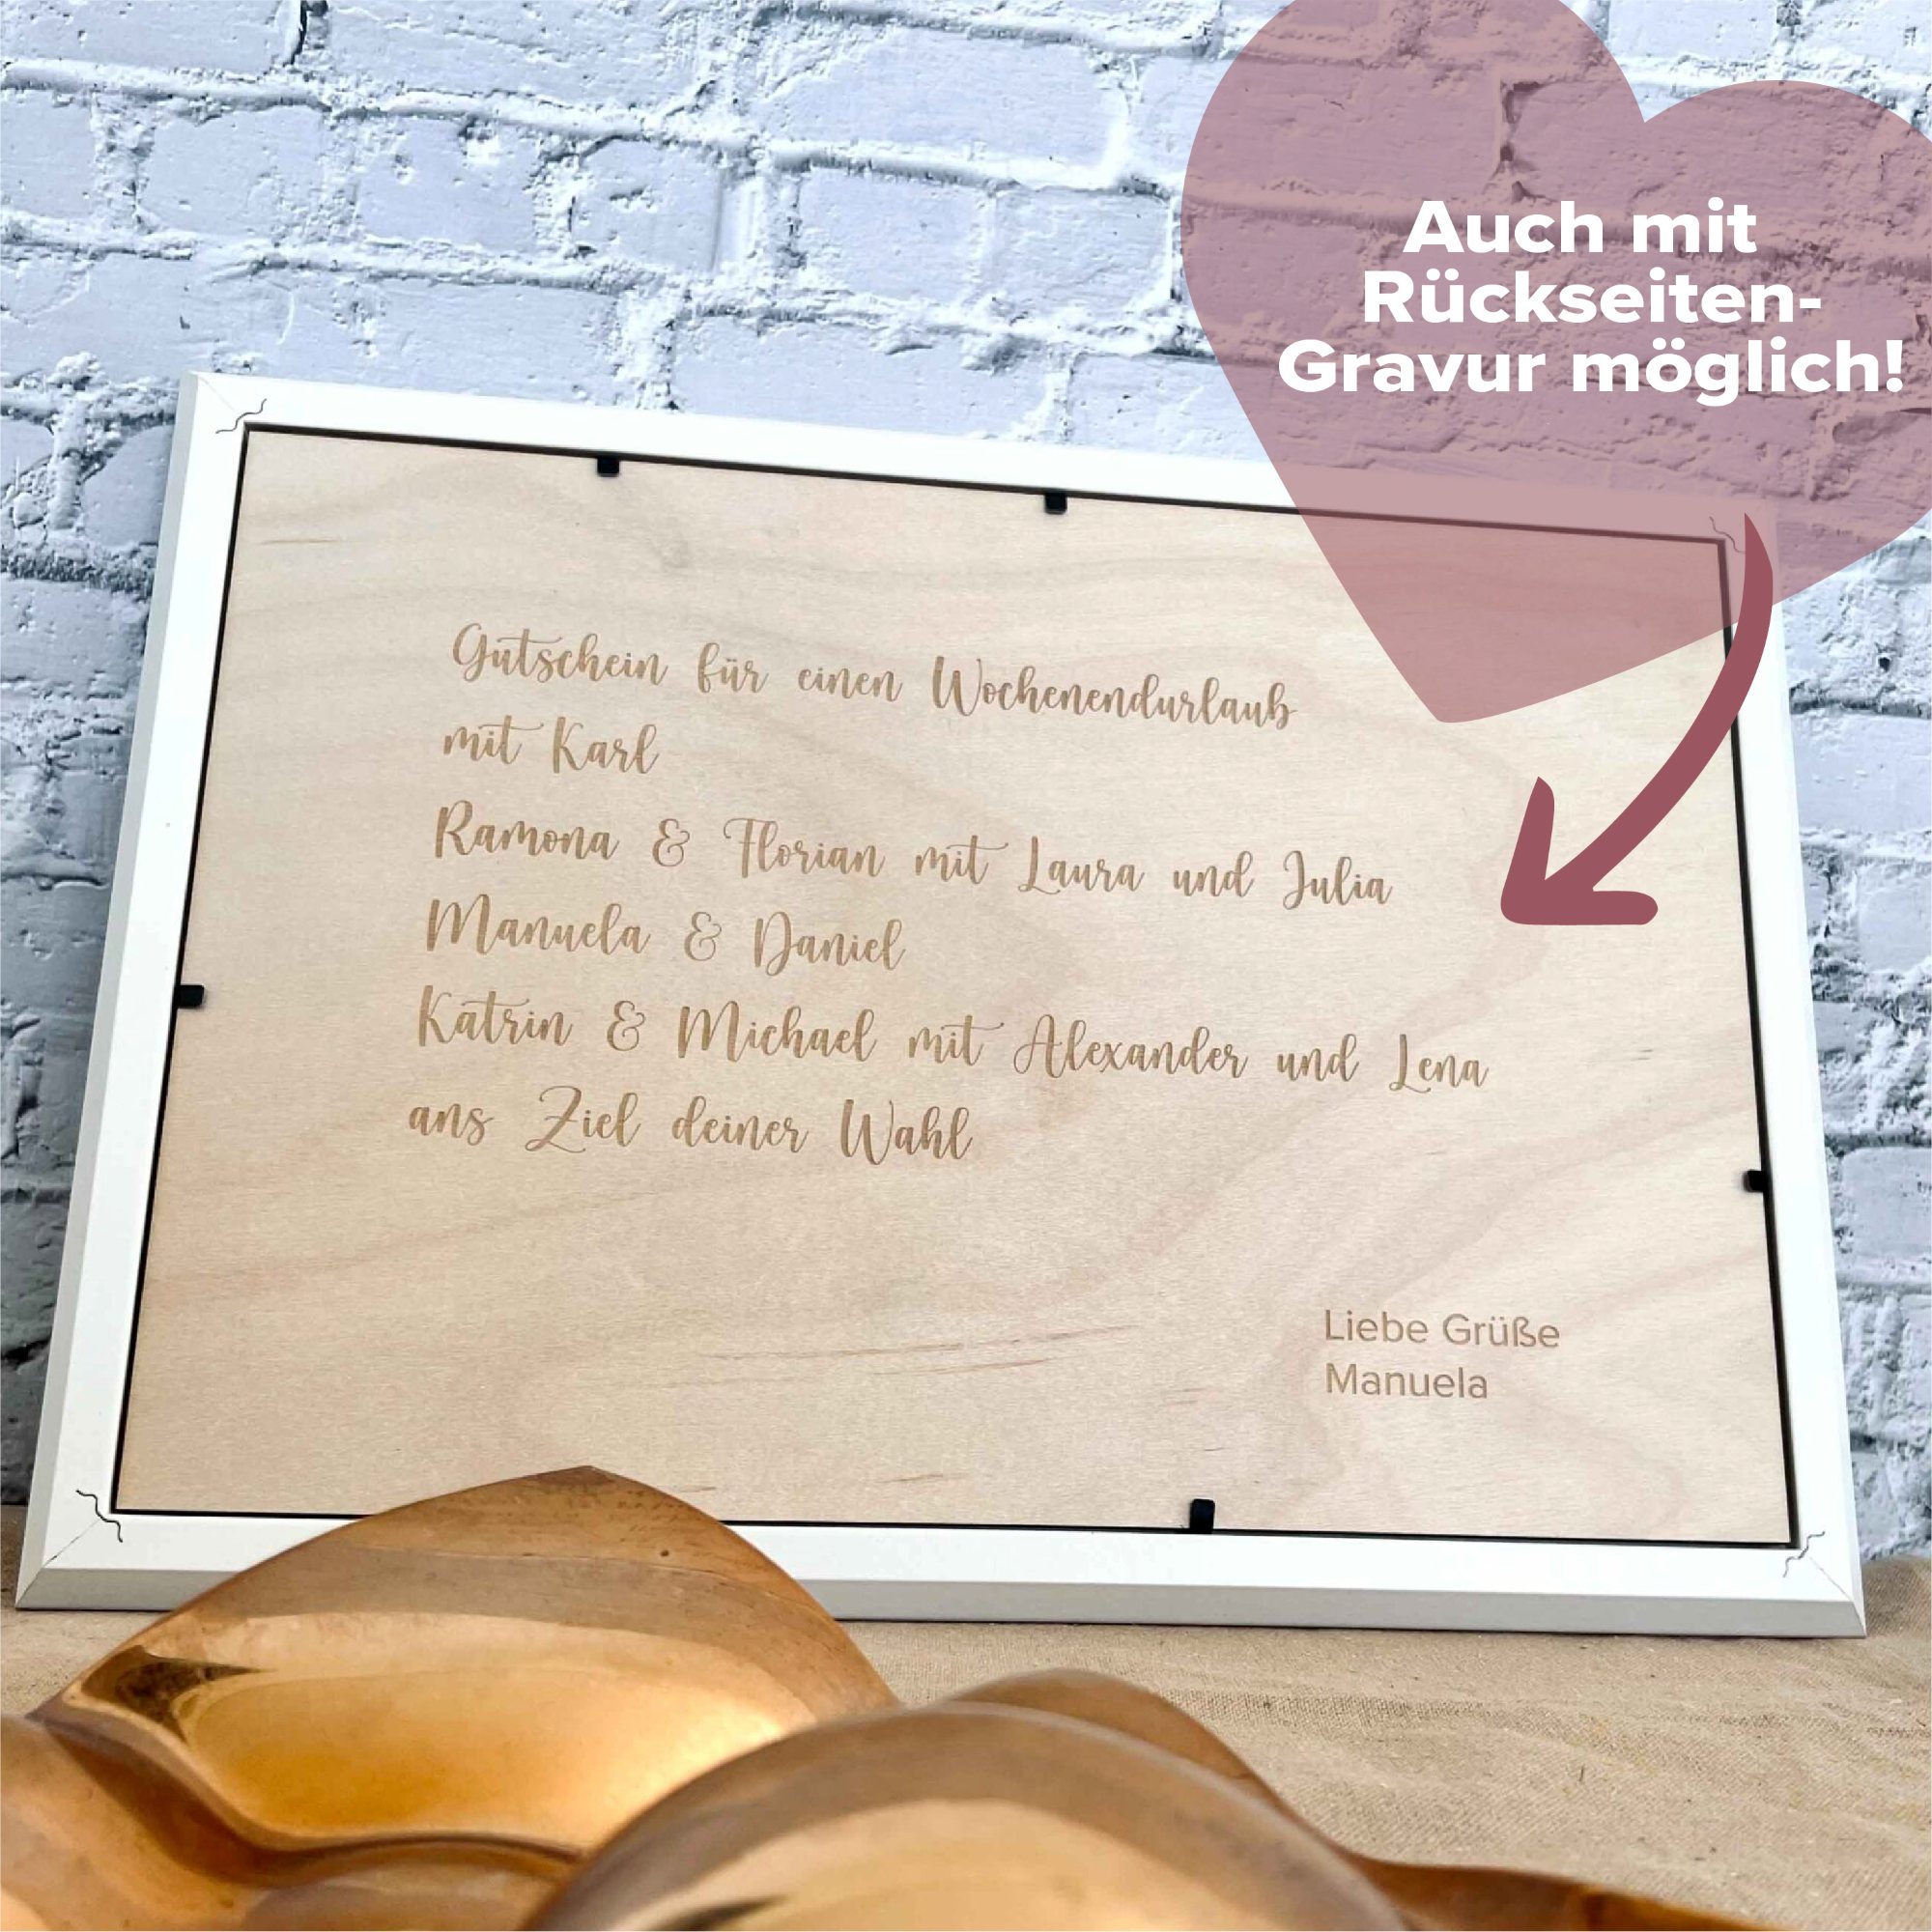 Auch mit
Rückseiten-
Gravur möglich!
Gutschein für einen Wochenendurlaub
mit Karl
Ramona & Florian mit Laura und Julia
Manuela & Daniel
Katrin & Michael mit Alexander und Lena
ans Ziel deiner Wahl
Liebe Grüße
Manuela